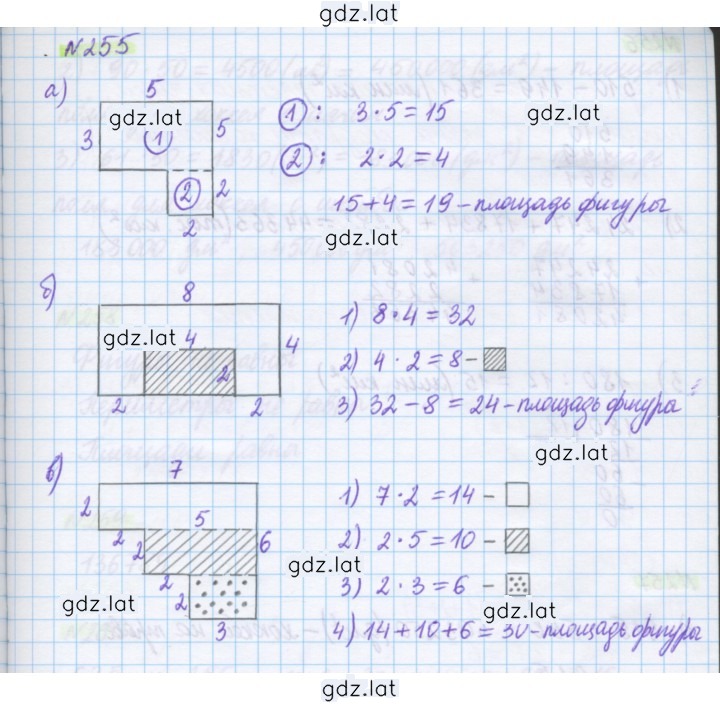 gdz.lat
№255
а)
5
gdz.lat
3
1
5
2
2
2
1 : 3·5=15
gdz.lat
2 : 2·2=4
15+4=19-площадь фигуры
gdz.lat
б)
8
gdz.lat
4
4
2
2
2
1) 8·4=32
2) 4·2=8-
3) 32-8=24-площадь фигура
gdz.lat
в)
7
2
5
2
2
6
2
2
3
gdz.lat
1) 7·2=14 -
2) 2·5=10 -
gdz.lat
3) 2·3=6 -
gdz.lat
4) 14+10+6=30-площадь фигуры
gdz.lat